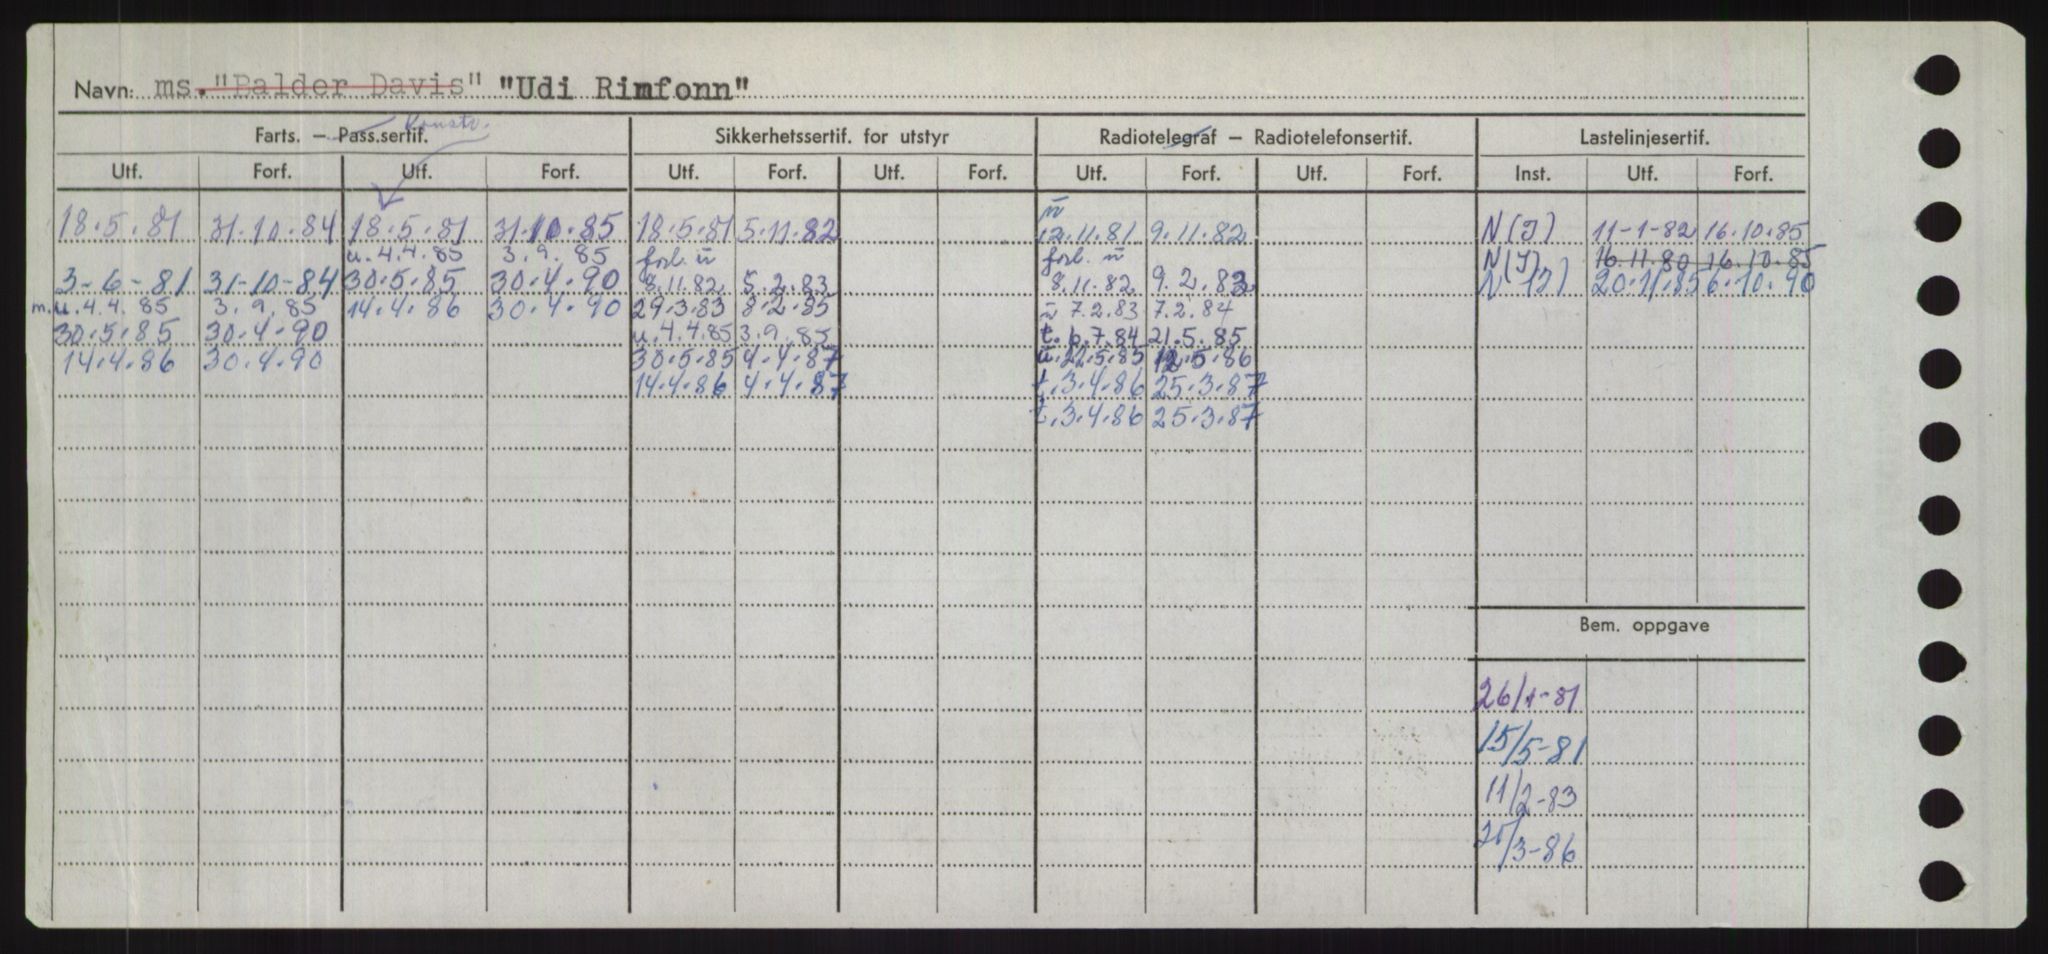 Navn: ms. "Balder Davis" "Udi Rimfonn"
Farts. — Pass.sertif. Konstr. Sikkerhetssertif. for utstyr Radiotelegraf — Radiotelefonsertif. Lastelinjesertif.
Utf. Forf. Utf. Forf. Utf. Forf. Utf. Forf. Utf. Forf. Utf. Forf. Inst. Utf. Forf.
18.5.81 31.10.84 18.5.81 31.10.85 18.5.81 5.11.82 ū 12.11.81 9.11.82 N(I) 11-1-82 16.10.85
u. 4.4.85 3.9.85 forl. ū forl. ū N(I) 16.11.80 16.10.85
3-6-81 31-10-84 30.5.85 30.4.90 8.11.82 5.2.83 8.11.82 9.2.83 N(I) 20.11.85 6.10.90
m. u. 4.4.85 3.9.85 14.4.86 30.4.90 29.3.83 8.2.85 ū 7.2.83 7.2.84
30.5.85 30.4.90 u. 4.4.85 3.9.85 t. 6.7.84 21.5.85
14.4.86 30.4.90 30.5.85 4.4.87 ū. 22.5.85 12.5.86
14.4.86 4.4.87 t. 3.4.86 25.3.87
t. 3.4.86 25.3.87
Bem. oppgave
26/1-81
15/5-81
11/2-83
/3-86